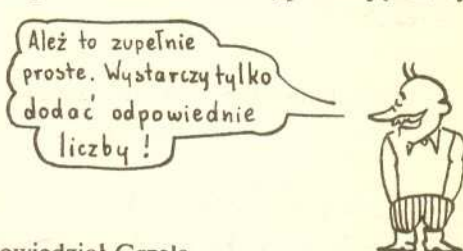 Ależ to zupełnie
proste. Wystarczy tylko
dodać odpowiednie
liczby !